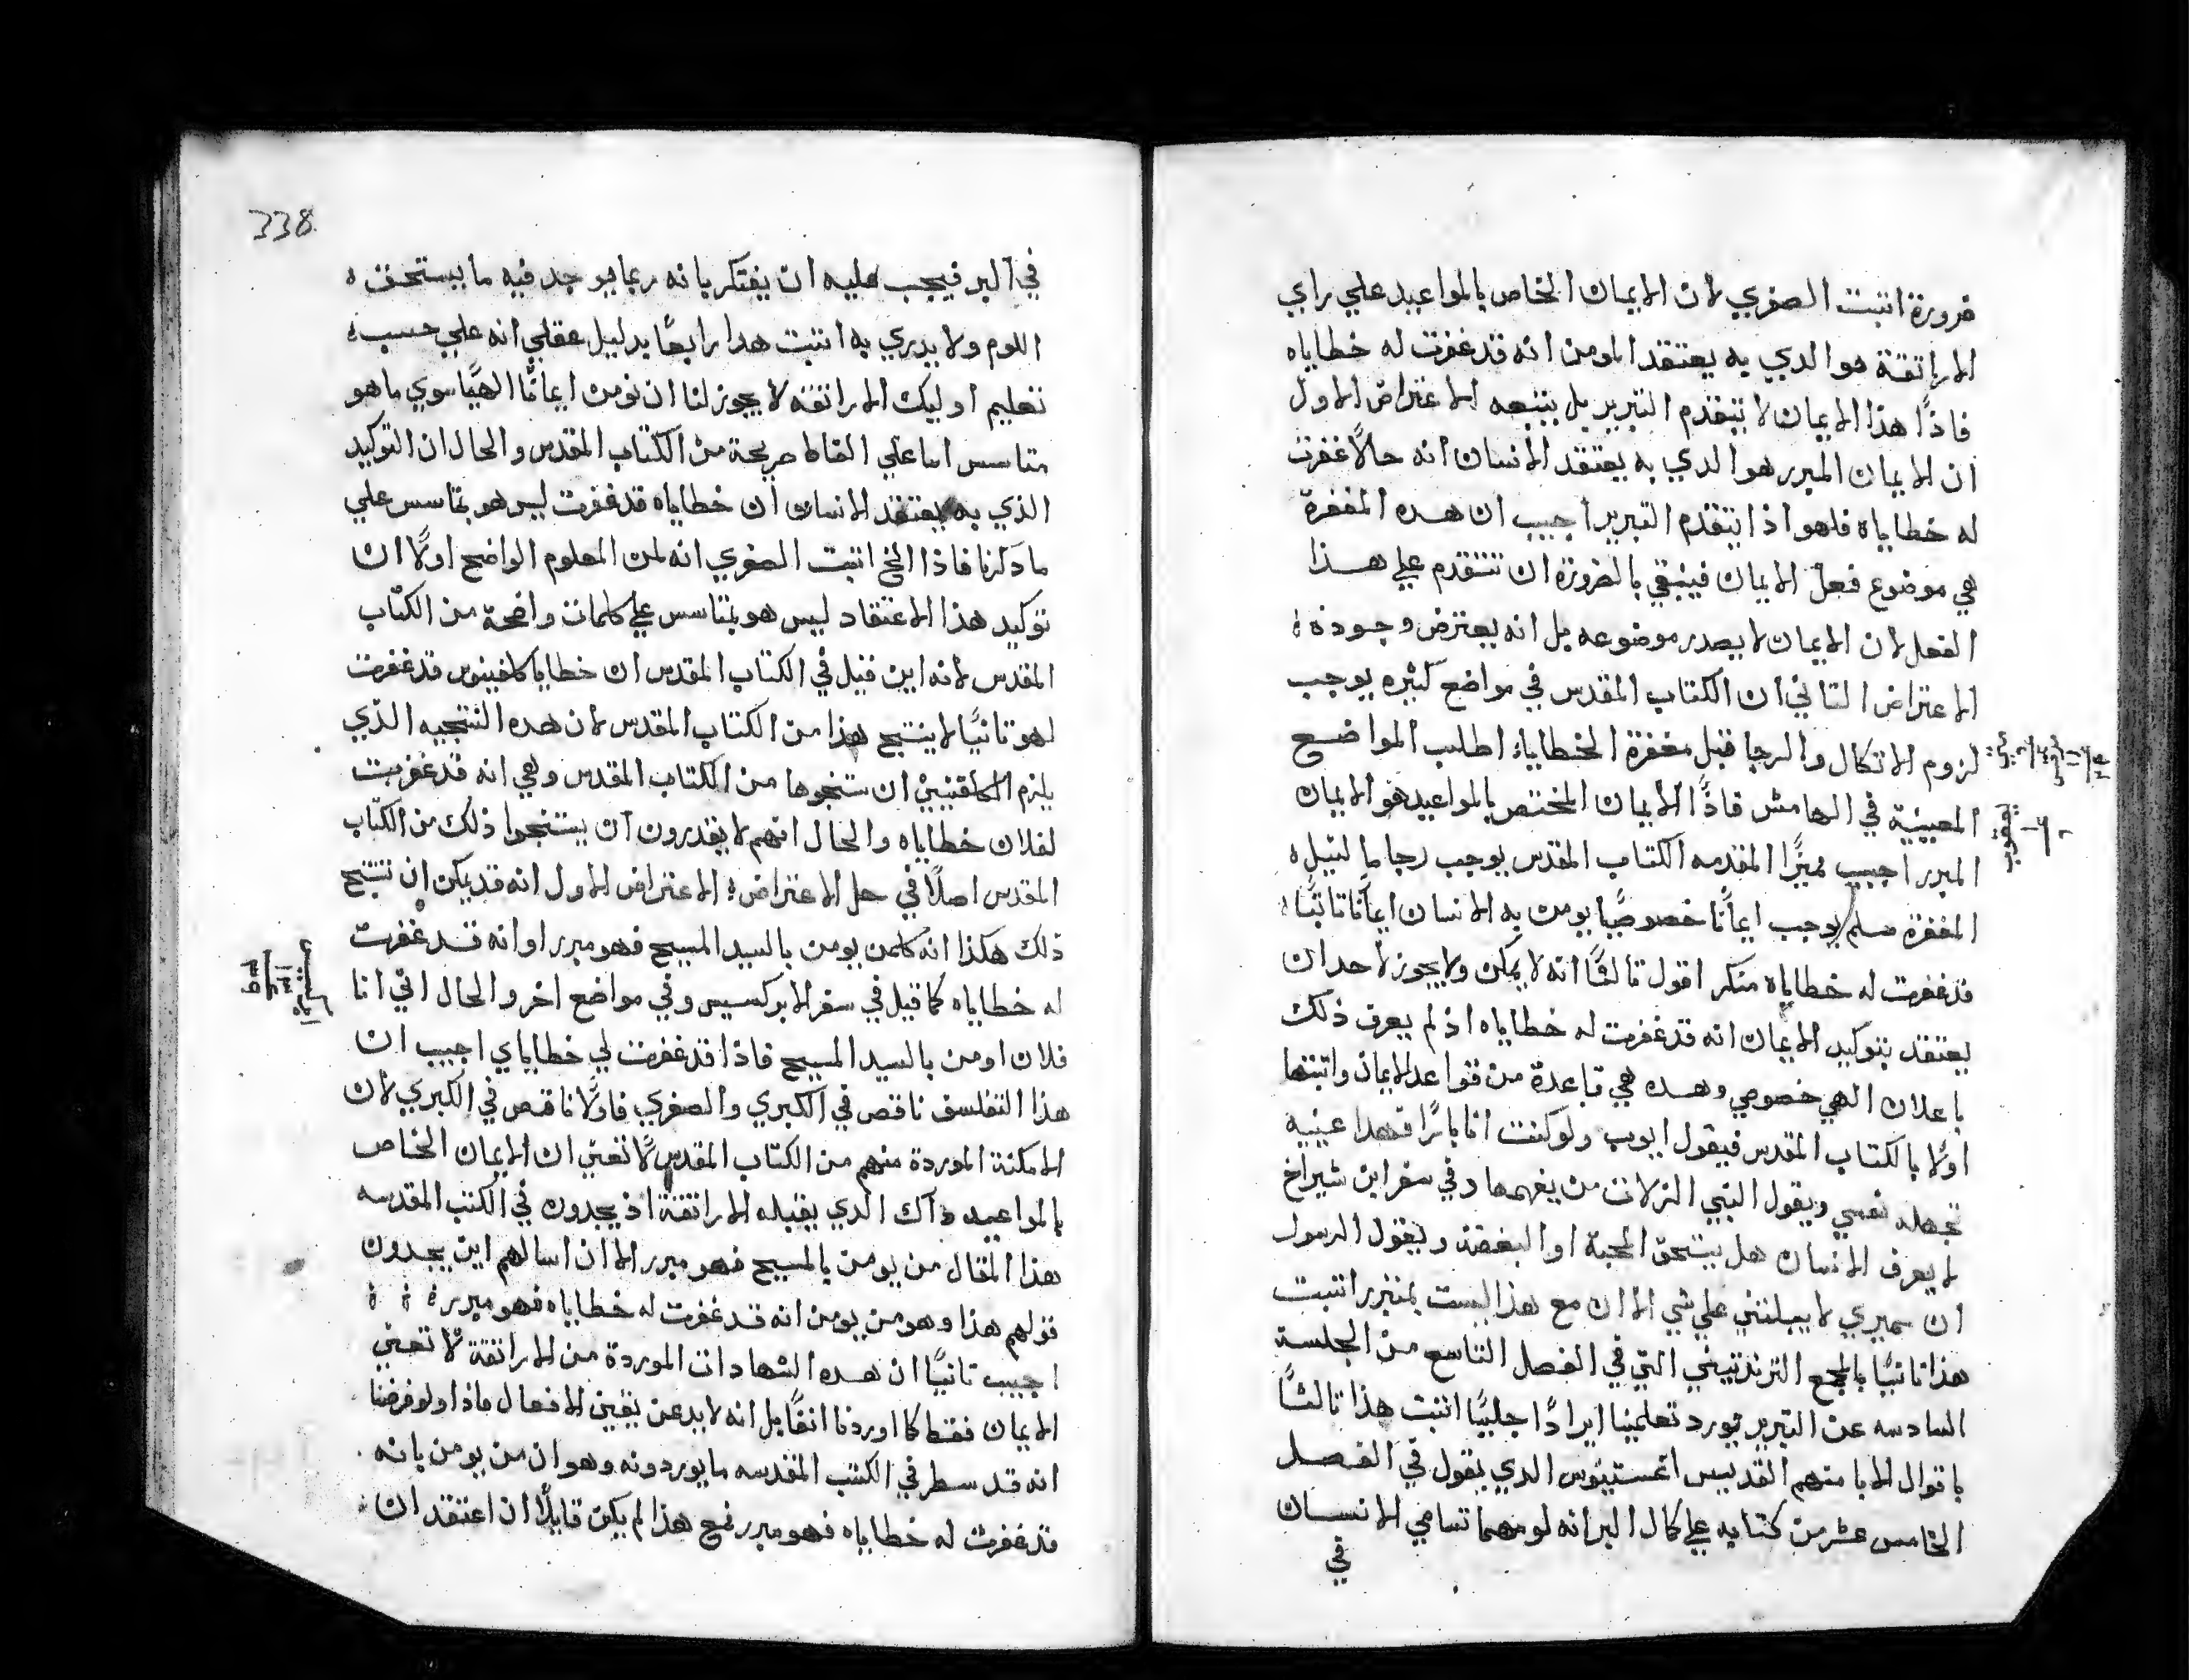 ضرورة اتبت الصغري لان الايمان الخاص بالمواعيد علي راي
الاراتقة هو الدي به يعتقد المومن انه قد غفرت له خطاياه
فاذًا هذا الايمان لا يتقدم التبرير بل يتبعه الاعتراض الاول
ان الايمان المبرر هو الدي به يعتقد الانسان انه حالًا غفرت
له خطاياه فلهو اذا يتقدم التبرير اجيب ان هده المغفرة
هي موضوع فعل الايمان فينبقي بالضرورة ان تتقدم علي هذا
الفعل لان الايمان لا يصدر موضوعه بل انه يعترض وجوده
الاعتراض التاني ان الكتاب المقدس في مواضع كثيره يوجب
لزوم الاتكال والرجا قبل مغفرة الخطايا اطلب المواضع
المعينة في الهامش فاذًا الايمان المختص بالمواعيد هو الايمان
المبرر اجيب مميزًا المقدمه الكتاب المقدس يوجب رجا ما لنيل
المغفرة مسلم يوجب ايمانًا خصوصيًا يومن به الانسان ايمانًا تابتًا
قد غفرت له خطاياه منكر اقول تالثًا انه لا يمكن ولا يجوز لاحد ان
يعتقد بتوكيد الايمان انه قد غفرت له خطاياه اذ لم يعرف ذلك
باعلان الهي خصوصي وهده هي قاعدة من قواعد الايمان واتبتها
اولًا بالكتاب المقدس فيقول ايوب ولو كنت انا بارًا فهدا عينيه
تجهله نفسي ويقول النبي الزلات من يفهمها وفي سفر ابن شيراخ
لا يعرف الانسان هل يستحق المحبة او البغضة ويقول الرسول
ان ضميري لا يبكتني علي شي الا ان مع هذا لست بمتبرر اتبت
هذا تانيًا بالمجمع التريدنتيني التي في الفصل التاسع من الجلسة
السادسه عن التبرير يورد تعليمنا ايرادًا جليًا اتبت هذا تالتًا
باقوال الابا منهم القديس اغستينوس الدي يقول في الفصل
الخامس عشر من كتابه علي كمال البر انه لو مهما تسامي الانسان
في
يعقوب
338
في البر فيجب عليه ان يفتكر بانه ربما يوجد فيه ما يستحق
اللوم ولا يدري به اتبت هدا رابعًا بدليل عقلي انه علي حسب
تعليم اوليك الاراتقه لا يجوز لنا ان نومن ايمانًا الهيًا سوي ما هو
متاسس اما علي الفاظ صريحة من الكتاب المقدس والحال ان التوكيد
الذي به يعتقد الانسان ان خطاياه قد غفرت ليس هو بتاسس علي
ما دكرنا فاذا الخ اتبت الصغري انه لمن المعلوم الواضح اولًا ان
توكيد هذا الاعتقاد ليس هو بمتاسس علي كلمات واضحة من الكتاب
المقدس لانه اين قيل في الكتاب المقدس ان خطايا كلفينوس قد غفرت
لهو تانيًا لا ينتج هذا من الكتاب المقدس لان هده النتيجه الذي
يلزم الكلفينيين ان ستنجوها من الكتاب المقدس وهي انه قد غفرت
لفلان خطاياه والحال انهم لا يقدرون ان يستنجوا ذلك من الكتاب
المقدس اصلًا في حل الاعتراض الاعتراض الاول انه قد يمكن ان تنتج
ذلك هكذا انه كلمن يومن بالسيد المسيح فهو مبرر او انه قد غفرت
له خطاياه كما قيل في سفر الابركسيس وفي مواضع اخر والحال اني انا
فلان اومن بالسيد المسيح فاذا قد غفرت لي خطاياي اجيب ان
هذا التفلسف ناقص في الكبري والصغري فاولًا ناقص في الكبري لان
الامكنة الموردة منهم من الكتاب المقدس لا تعني ان الايمان الخاص
بالمواعيد داك الدي يقبله الاراتقة اذ يجدون في الكتب المقدسه
هذا المقال من يومن بالمسيح فهو مبرر الا ان اسالهم اين يجدون
قولهم هذا وهو من يومن انه قد غفرت له خطاياه فهو مبرر
اجيب تانيًا ان هده الشهادات الموردة من الاراتقة لا تعني
الايمان فقط كما اوردنا انفًا بل انه لا بد عن يقين الافعال ماذا ولو فرضنا
انه قد سطر في الكتب المقدسه ما يوردونه وهو ان من يومن بانه
قد غفرت له خطاياه فهو مبرر فمع هذا لم يكن قايلًا ان اعتقد ان
ابركسيس
١٣
٣٩